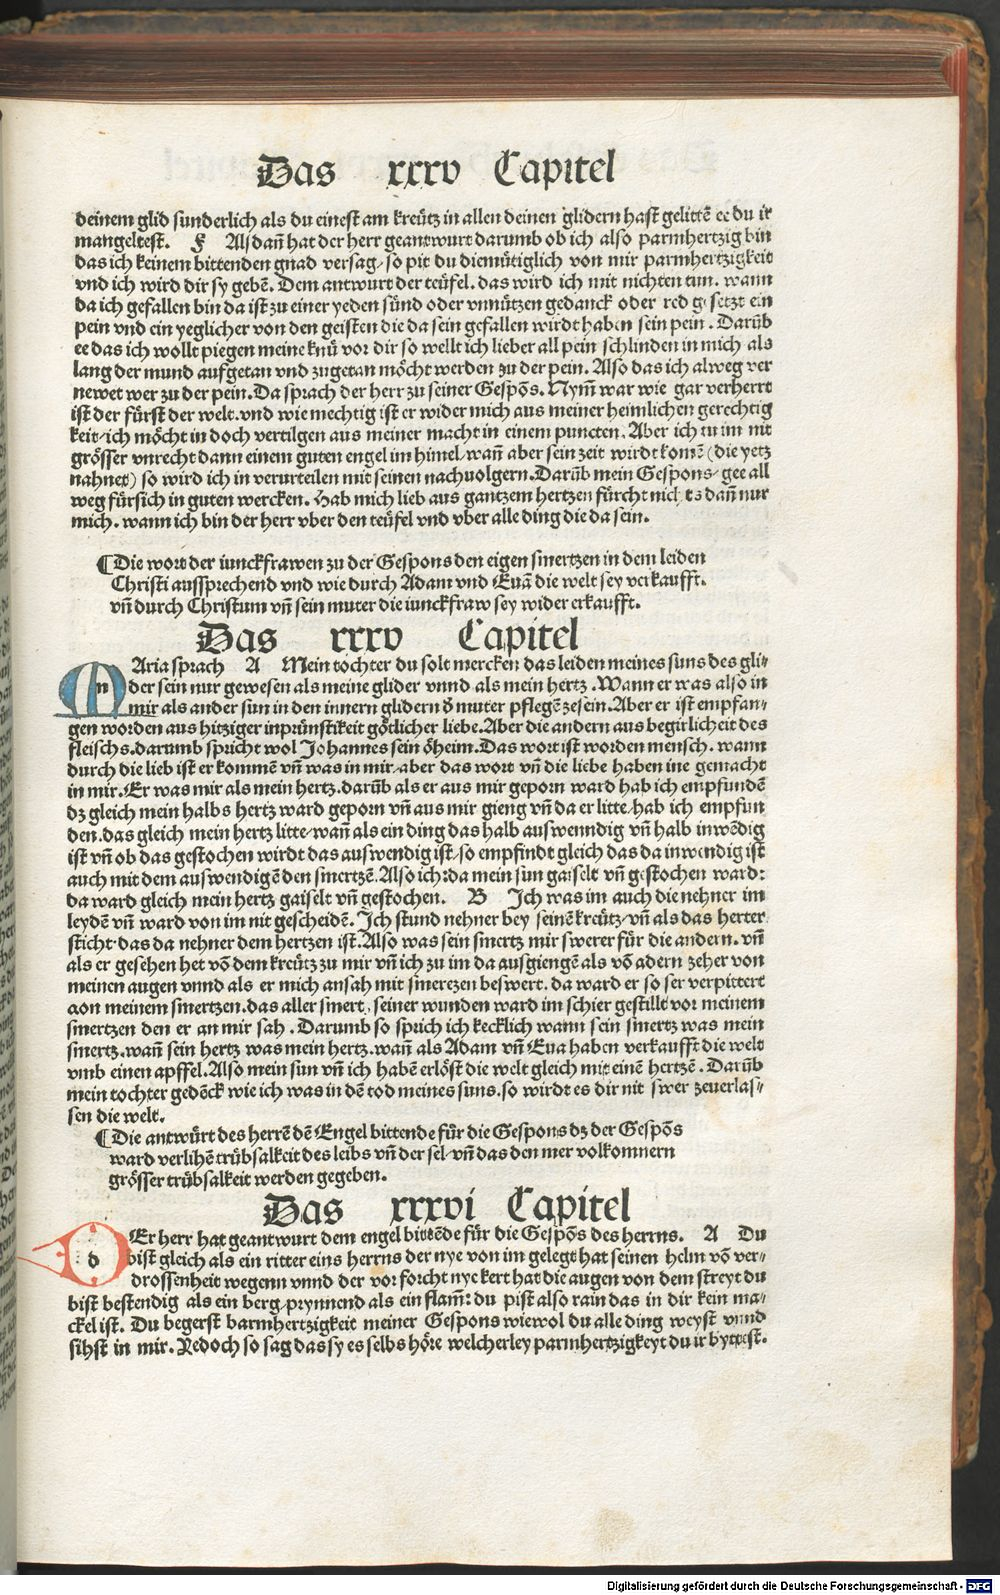 Das xxxv Capitel
deinem glid sunderlich als du einest am kreütz in allen deinen glidern hast gelittē ee du ir
mangeltest. F Alsdañ hat der herr geantwurt darumb ob ich also parmhertzig bin
das ich keinem bittenden gnad versag/so pit du diemütiglich von mir parmhertzigkeit
vnd ich wird dir sy gebē. Dem antwurt der teüfel. das wird ich mit nichten tun. wann
da ich gefallen bin da ist zu einer yeden sünd oder vnnützen gedanck oder red gesetzt ein
pein vnd ein yeglicher von den geisten die da sein gefallen wirdt haben sein pein. Darūb
ee das ich wollt piegen meine knü vor dir so wellt ich lieber all pein schlinden in mich als
lang der mund aufgetan vnd zugetan möcht werden zu der pein. Also das ich alweg ver
newet wer zu der pein. Da sprach der herr zu seiner Gespōs. Nym̄ war wie gar verherrt
ist der fürst der welt. vnd wie mechtig ist er wider mich aus meiner heimlichen gerechtig
keit/ich möcht in doch vertilgen aus meiner macht in einem puncten. Aber ich tu im nit
grösser vnrecht dann einem guten engel im himel/wañ aber sein zeit wirdt komē (die yetz
nahnet) so wird ich in verurteilen mit seinen nachuolgern. Darūb mein Gespons/gee all
weg fürsich in guten wercken. Hab mich lieb aus gantzem hertzen fürcht nichts dañ nur
mich. wann ich bin der herr vber den teüfel vnd vber alle ding die da sein.
¶ Die wort der iunckfrawen zu der Gespons den eigen smertzen in dem leiden
Christi aussprechend vnd wie durch Adam vnd Euā die welt sey verkaufft.
vñ durch Christum vñ sein muter die iunckfraw sey wider erkaufft.
Das xxxv Capitel
MAria sprach A Mein tochter du solt mercken das leiden meines suns des gli-
der sein nur gewesen als meine glider vnnd als mein hertz. Wann er was also in
mir als ander sun in den innern glidern d̄ muter pflegē zesein. Aber er ist empfan-
gen worden aus hitziger inprünstikeit götlicher liebe. Aber die andern aus begirlicheit des
fleischs. darumb spricht wol Johannes sein öheim. Das wort ist worden mensch. wann
durch die lieb ist er kommē vñ was in mir/aber das wort vñ die liebe haben ine gemacht
in mir. Er was mir als mein hertz. darūb als er aus mir geporn ward hab ich empfundē
dz gleich mein halbs hertz ward geporn vñ aus mir gieng vñ da er litte/hab ich empfun
den. das gleich mein hertz litte/wañ als ein ding das halb auswenndig vñ halb inwēdig
ist vñ ob das gestochen wirdt das auswendig ist/so empfindt gleich das da inwendig ist
auch mit dem auswendigē den smertzē. Also ich: da mein sun gaiselt vñ gestochen ward:
da ward gleich mein hertz gaiselt vñ gestochen. B Ich was im auch die nehner im
leydē vñ ward von im nit gescheidē. Ich stund nehner bey seinē kreütz/vñ als das herter
sticht. das da nehner dem hertzen ist. Also was sein smertz mir swerer für die andern. vñ
als er gesehen het vō dem kreütz zu mir vñ ich zu im da ausgiengē als vō adern zeher von
meinen augen vnnd als er mich ansah mit smerczen beswert. da ward er so ser verpittert
aon meinem smertzen. das aller smertz seiner wunden ward im schier gestillt vor meinem
smertzen den er an mir sah. Darumb so sprich ich kecklich wann sein smertz was mein
smertz. wañ sein hertz was mein hertz. wañ als Adam vñ Eua haben verkaufft die welt
vmb einen apffel. Also mein sun vñ ich habē erlöst die welt gleich mit einē hertzē. Darūb
mein tochter gedēck wie ich was in dē tod meines suns. so wirdt es dir nit swer zeuerlas-
sen die welt.
¶ Die antwürt des herrē dē Engel bittende für die Gespons dz der Gespōs
ward verlihē trübsalkeit des leibs vñ der sel/vñ das den mer volkomnern
grösser trübsalkeit werden gegeben.
Das xxxvi Capitel
DEr herr hat geantwurt dem engel bittēde für die Gespōs des herrns. A Du
bist gleich als ein ritter eins herrns der nye von im gelegt hat seinen helm vō ver-
drossenheit wegenn vnnd der vor forcht nye kert hat die augen von dem streyt du
bist bestendig als ein berg/prynnend als ein flam̄: du pist also rain das in dir kein ma-
ckel ist. Du begerst barmhertzigkeit meiner Gespons wiewol du alle ding weyst vnnd
sihst in mir. Yedoch so sag das sy es selbs höre welcherley parmhertzigkeyt du ir byttest.
Digitalisierung gefördert durch die Deutsche Forschungsgemeinschaft - DFG